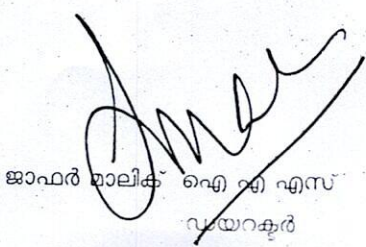 ജാഫർ മാലിക് ഐ എ എസ്
ഡയറക്ടർ